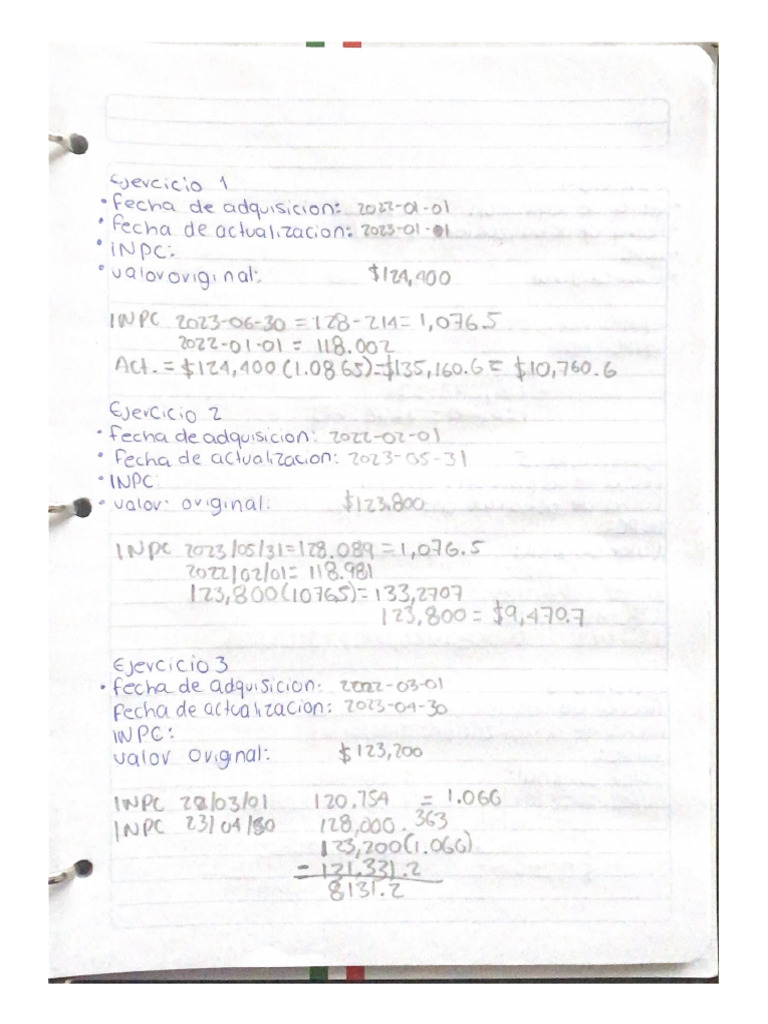 Ejercicio 1
• fecha de adquisicion: 2022-01-01
• fecha de actualizacion: 2023-01-01
• INPC:
• valor original: $124,400
INPC 2023-06-30 = 128-214 = 1,076.5
2022-01-01 = 118.002
Act. = $124,400 (1.0865) = $135,160.6 = $10,760.6
Ejercicio 2
• fecha de adquisicion: 2022-02-01
• fecha de actualizacion: 2023-05-31
• INPC:
• valor original: $123,800
INPC 2023/05/31 = 128.089 = 1,076.5
2022/02/01 = 118.981
123,800 (10765) = 133,2707
123,800 = $9,470.7
Ejercicio 3
• fecha de adquisicion: 2022-03-01
fecha de actualizacion: 2023-04-30
INPC:
valor original: $123,200
INPC 22/03/01 120.754 = 1.066
INPC 23/04/30 128,000.363
123,200 (1.066)
= 131.331.2
8131.2